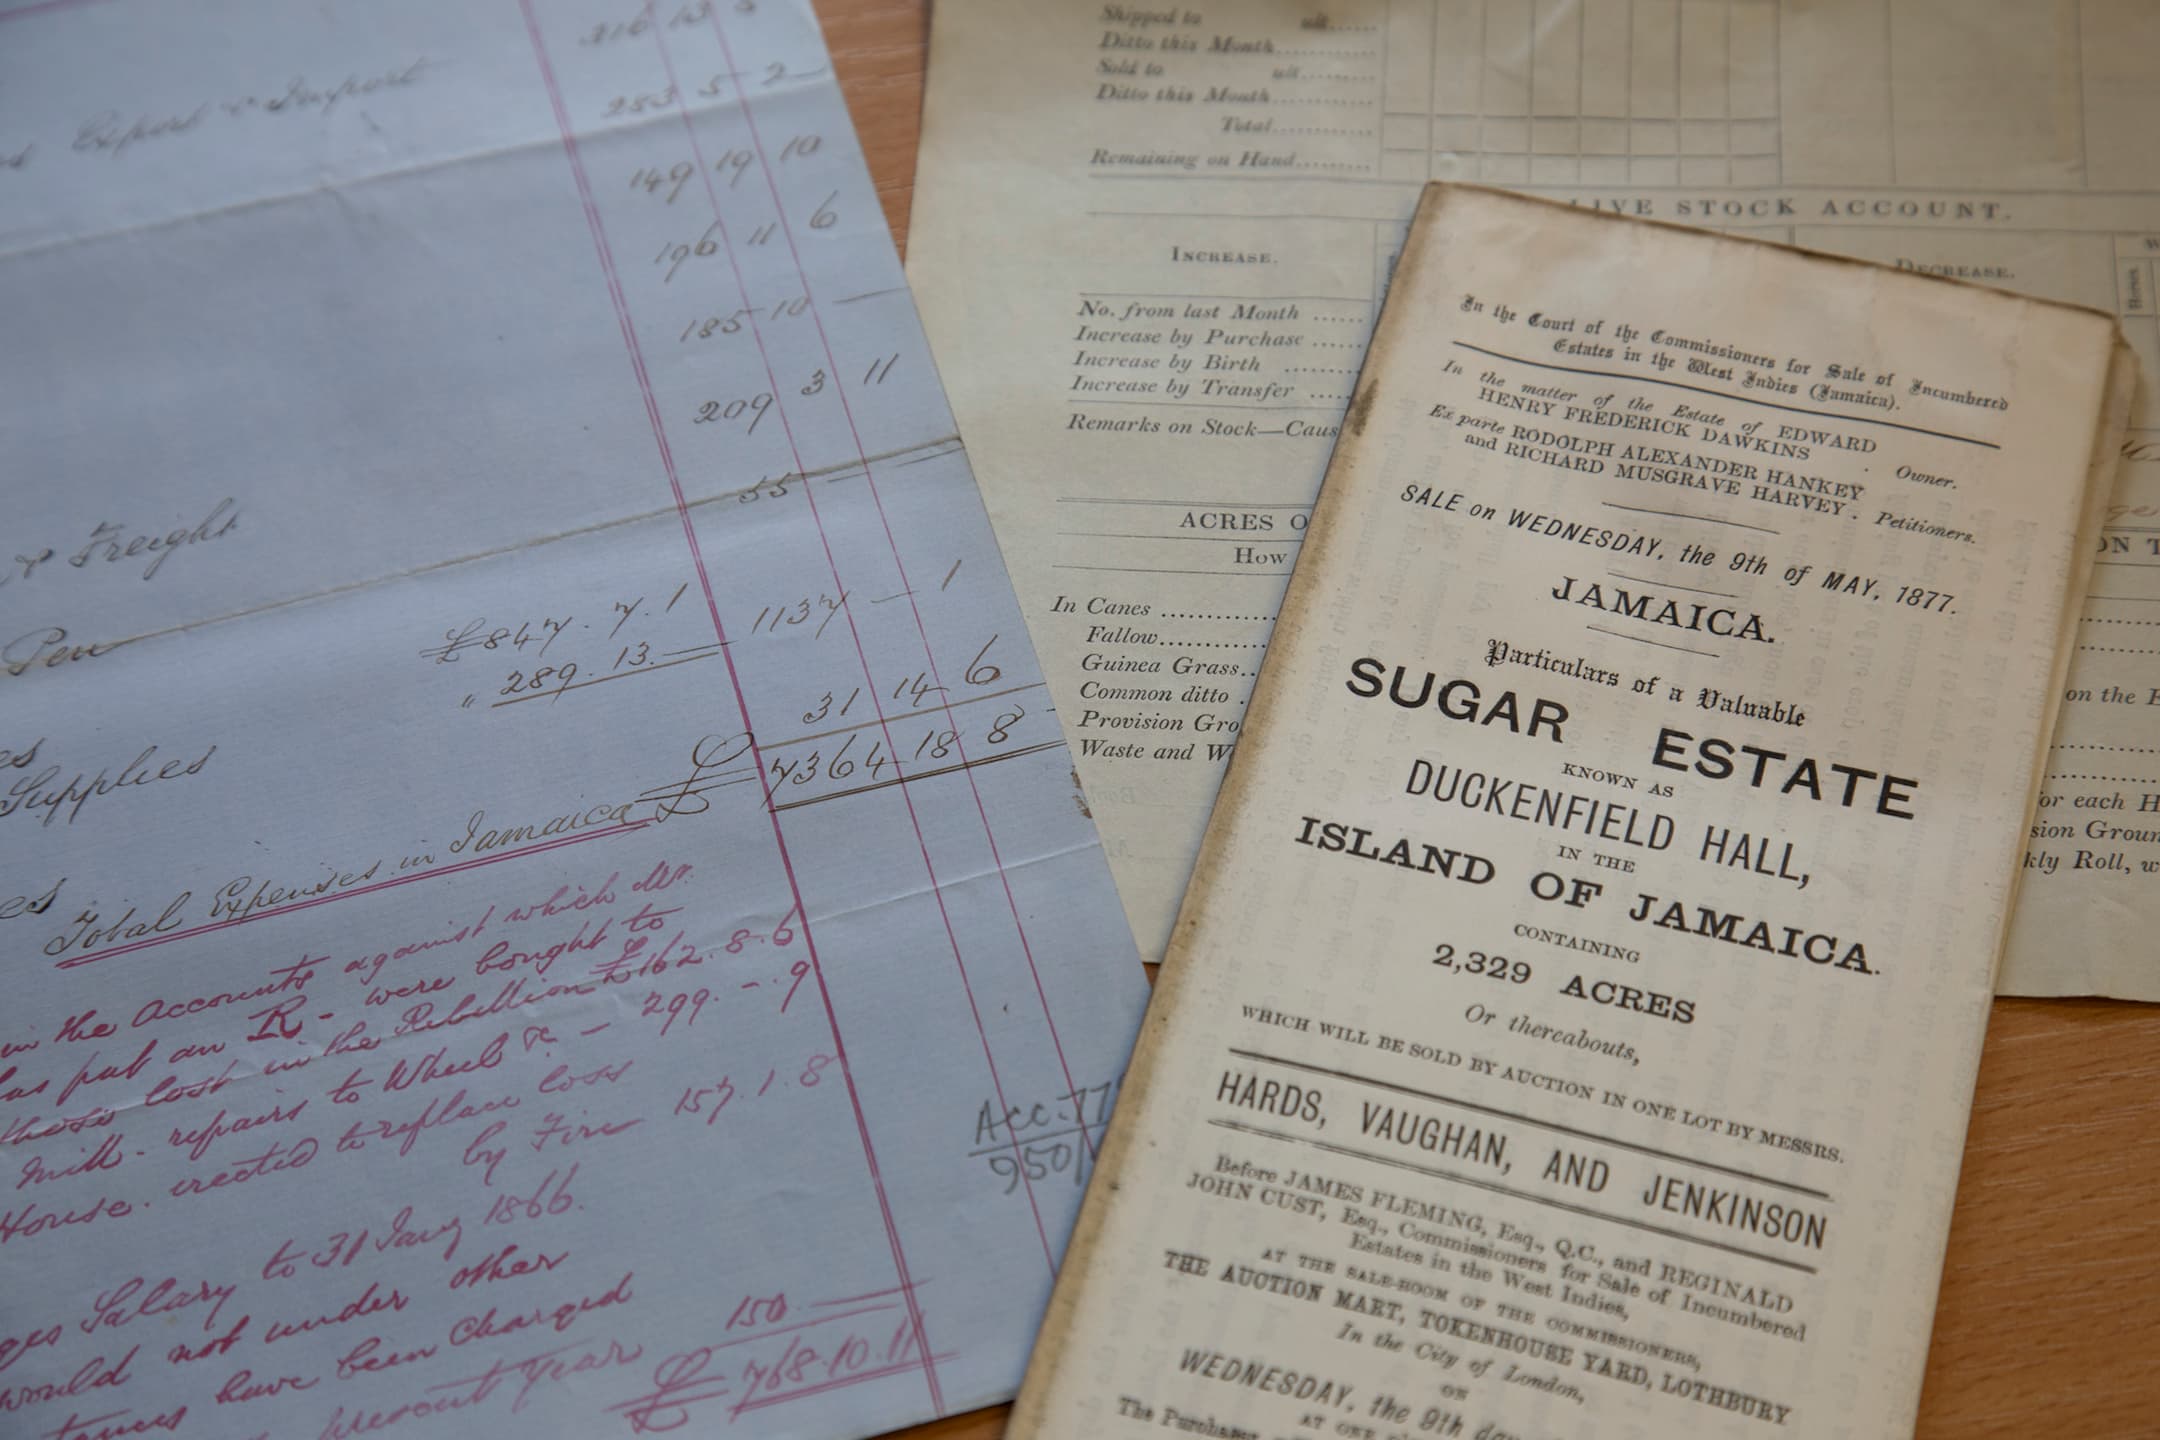 216 13 5
Export & Import
253 5 2
149 19 10
196 11 6
185 10 —
209 3 11
& Freight
55 — —
Pen
£847. 7. 1
1137 — 1
" 289. 13. —
es
31 14 6
Supplies
£ 7364 18 8
es
Total Expenses in Jamaica
in the Accounts against which Mr.
has put an R - were bought to
those lost in the Rebellion £162. 8. 6
Mill - repairs to Wheel &c — 299. - . 9
House. erected to replace loss
by Fire 157. 1. 8
ges Salary to 31 Jany 1866.
would not under other
have been charged
present Year 150. —
£ 768. 10. 11
Acc. 77
950/
Shipped to ult......
Ditto this Month............
Sold to ult.........
Ditto this Month............
Total............
Remaining on Hand.........
LIVE STOCK ACCOUNT.
INCREASE.
DECREASE.
No. from last Month ......
Increase by Purchase ......
Increase by Birth ......
Increase by Transfer .....
Remarks on Stock—Caus
ACRES O
How
In Canes ............
Fallow............
Guinea Grass..
Common ditto .
Provision Gro
Waste and W
on the E
for each H
sion Groun
kly Roll, w
In the Court of the Commissioners for Sale of Incumbered
Estates in the West Indies (Jamaica).
In the matter of the Estate of EDWARD
HENRY FREDERICK DAWKINS . Owner.
Ex parte RODOLPH ALEXANDER HANKEY
and RICHARD MUSGRAVE HARVEY . Petitioners.
SALE on WEDNESDAY, the 9th of MAY, 1877.
JAMAICA.
Particulars of a Valuable
SUGAR ESTATE
KNOWN AS
DUCKENFIELD HALL,
IN THE
ISLAND OF JAMAICA.
CONTAINING
2,329 ACRES
Or thereabouts,
WHICH WILL BE SOLD BY AUCTION IN ONE LOT BY MESSRS.
HARDS, VAUGHAN, AND JENKINSON
Before JAMES FLEMING, Esq., Q.C., and REGINALD
JOHN CUST, Esq., Commissioners for Sale of Incumbered
Estates in the West Indies,
AT THE SALE-ROOM OF THE COMMISSIONERS,
THE AUCTION MART, TOKENHOUSE YARD, LOTHBURY
In the City of London,
ON
WEDNESDAY, the 9th da
AT ONE
The Purchase